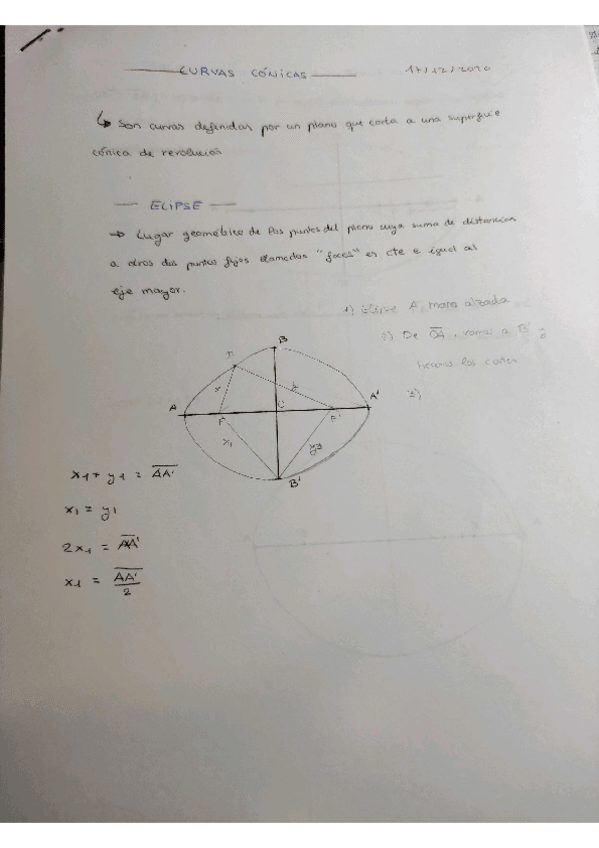 CURVAS CÓNICAS 17/12/2020
↳ Son curvas definidas por un plano que corta a una superficie
cónica de revolución
ELIPSE
→ Lugar geométrico de los puntos del plano cuya suma de distancias
a otros dos puntos fijos llamados "focos" es cte e igual al
eje mayor.
1) Elipse A mano alzada
2) De OA, vamos a B' y
hacemos los cortes
3)
B
A
F
F'
A'
x1
B'
x1 + y1 = AA'
x1 = y1
2x1 = AA'
x1 = AA'/2